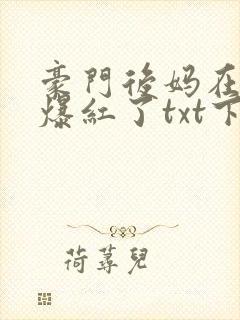 豪門後妈在
爆紅了txt下
荷蕁兒